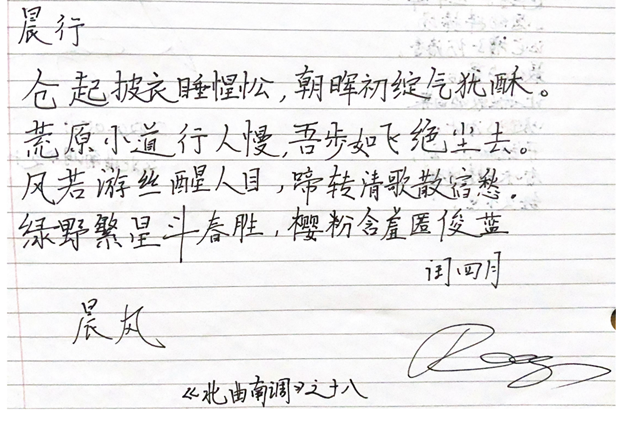 晨行
仓起披衣睡惺忪，朝晖初绽气犹酥。
荒原小道行人慢，吾步如飞绝尘去。
风若游丝醒人目，啼转清歌散宿愁．
绿野繁星斗春胜，樱粉含羞匿俊蓝
闰四月
晨风
《北曲南调》之十八